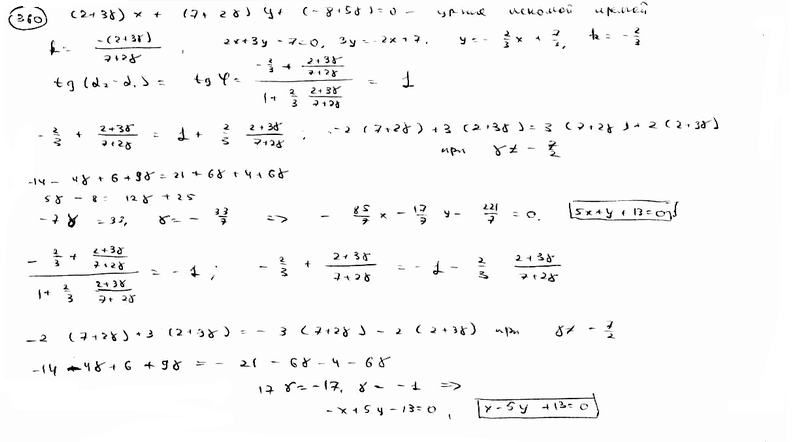 360 (2+3γ)x + (7+2γ)y + (-8+5γ)=0 - ур-ние искомой прямой
k = -(2+3γ)/(7+2γ), 2x+3y-7=0, 3y=-2x+7, y=-2/3 x + 7/3, k=-2/3
tg(α₂-α₁) = tg φ = (-2/3 + (2+3γ)/(7+2γ)) / (1+ 2/3 (2+3γ)/(7+2γ)) = 1
-2/3 + (2+3γ)/(7+2γ) = 1 + 2/3 (2+3γ)/(7+2γ); -2(7+2γ)+3(2+3γ)=3(7+2γ)+2(2+3γ)
при γ≠-7/2
-14-4γ+6+9γ=21+6γ+4+6γ
5γ-8=12γ+25
-7γ=33, γ=-33/7 => -85/7 x - 17/7 y - 221/7 = 0. 5x+y+13=0
(-2/3 + (2+3γ)/(7+2γ)) / (1+ 2/3 (2+3γ)/(7+2γ)) = -1; -2/3 + (2+3γ)/(7+2γ) = -1 - 2/3 (2+3γ)/(7+2γ)
-2(7+2γ)+3(2+3γ)=-3(7+2γ)-2(2+3γ) при γ≠-7/2
-14-4γ+6+9γ=-21-6γ-4-6γ
17γ=-17, γ=-1 =>
-x+5y-13=0, x-5y+13=0